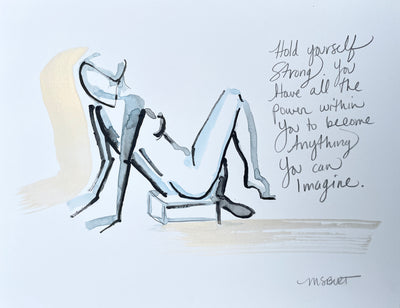 Hold yourself
Strong. You
Have all the
Power within
You to become
Anything
You can
Imagine.